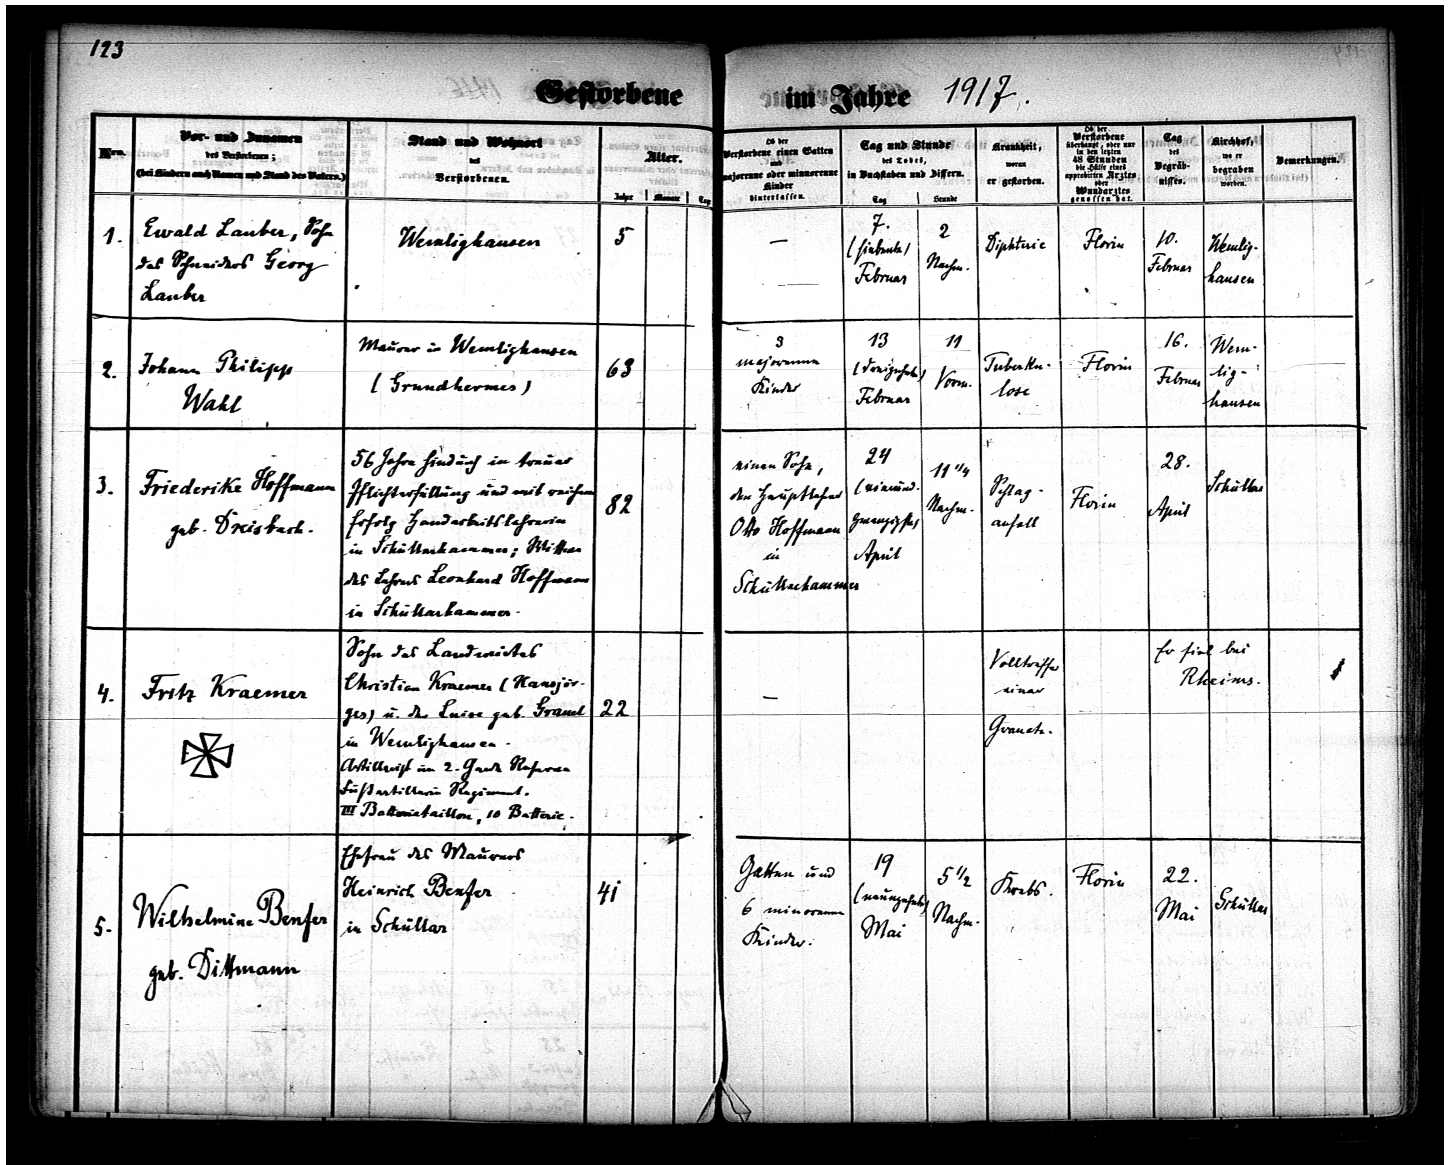 123
Gestorbene im Jahre 1917.
Nro.
Vor- und Zunamen
des Verstorbenen;
(bei Kindern auch Namen und Stand des Vaters.)
Stand und Wohnort
des
Verstorbenen.
Alter.
Jahre Monate Tag
Ob der
Verstorbene einen Gatten
und
majorenne oder minorenne
Kinder
hinterlassen.
Tag und Stunde
des Todes,
in Buchstaben und Ziffern.
Tag Stunde
Krankheit,
woran
er gestorben.
Ob der
Verstorbene
überhaupt, oder nur
in den letzten
48 Stunden
die Hülfe eines
approbirten Arztes
oder
Wundarztes
genossen hat.
Tag
des
Begräb-
nisses.
Kirchhof,
wo er
begraben
worden.
Bemerkungen.
1.
Ewald Lauber, Sohn
des Schneiders Georg
Lauber
Wemlighausen
5
—
7.
(siebente)
Februar
2
Nachm.
Diphterie
Florin
10.
Februar
Wemlig-
hausen
2.
Johann Philipp
Wahl
Maurer in Wemlighausen
(Grundhermes)
63
3
majorenne
Kinder
13
(dreizehnte)
Februar
11
Vorm.
Tuberku-
lose
Florin
16.
Februar
Wem-
lig-
hausen
3.
Friederike Hoffmann
geb. Dreisbach.
56 Jahre hindurch in treuer
Pflichterfüllung und mit reichem
Erfolg Handarbeitslehrerin
in Schüllarhammer; Wittwe
des Lehrers Leonhard Hoffmann
in Schüllarhammer.
82
einen Sohn,
den Hauptlehrer
Otto Hoffmann
in
Schüllarhammer
24
(vierund-
zwanzigste)
April
11 1/4
Nachm.
Schlag-
anfall
Florin
28.
April
Schüllar
4.
Fritz Kraemer
Sohn des Landwirtes
Christian Kraemer (Hansjör-
ges) u. der Luise geb. Grauel
in Wemlighausen.
Artillerist im 2. Garde Reserve
Fußartillerie Regiment.
III Batterietaillon, 10 Batterie.
22
—
Volltreffer
einer
Granate.
Er fiel bei
Rheims.
5.
Wilhelmine Benfer
geb. Dittmann
Ehefrau des Maurers
Heinrich Benfer
in Schüllar
41
Gatten und
6 minorenne
Kinder.
19
(neunzehnte)
Mai
5 1/2
Nachm.
Krebs.
Florin
22.
Mai
Schüllar